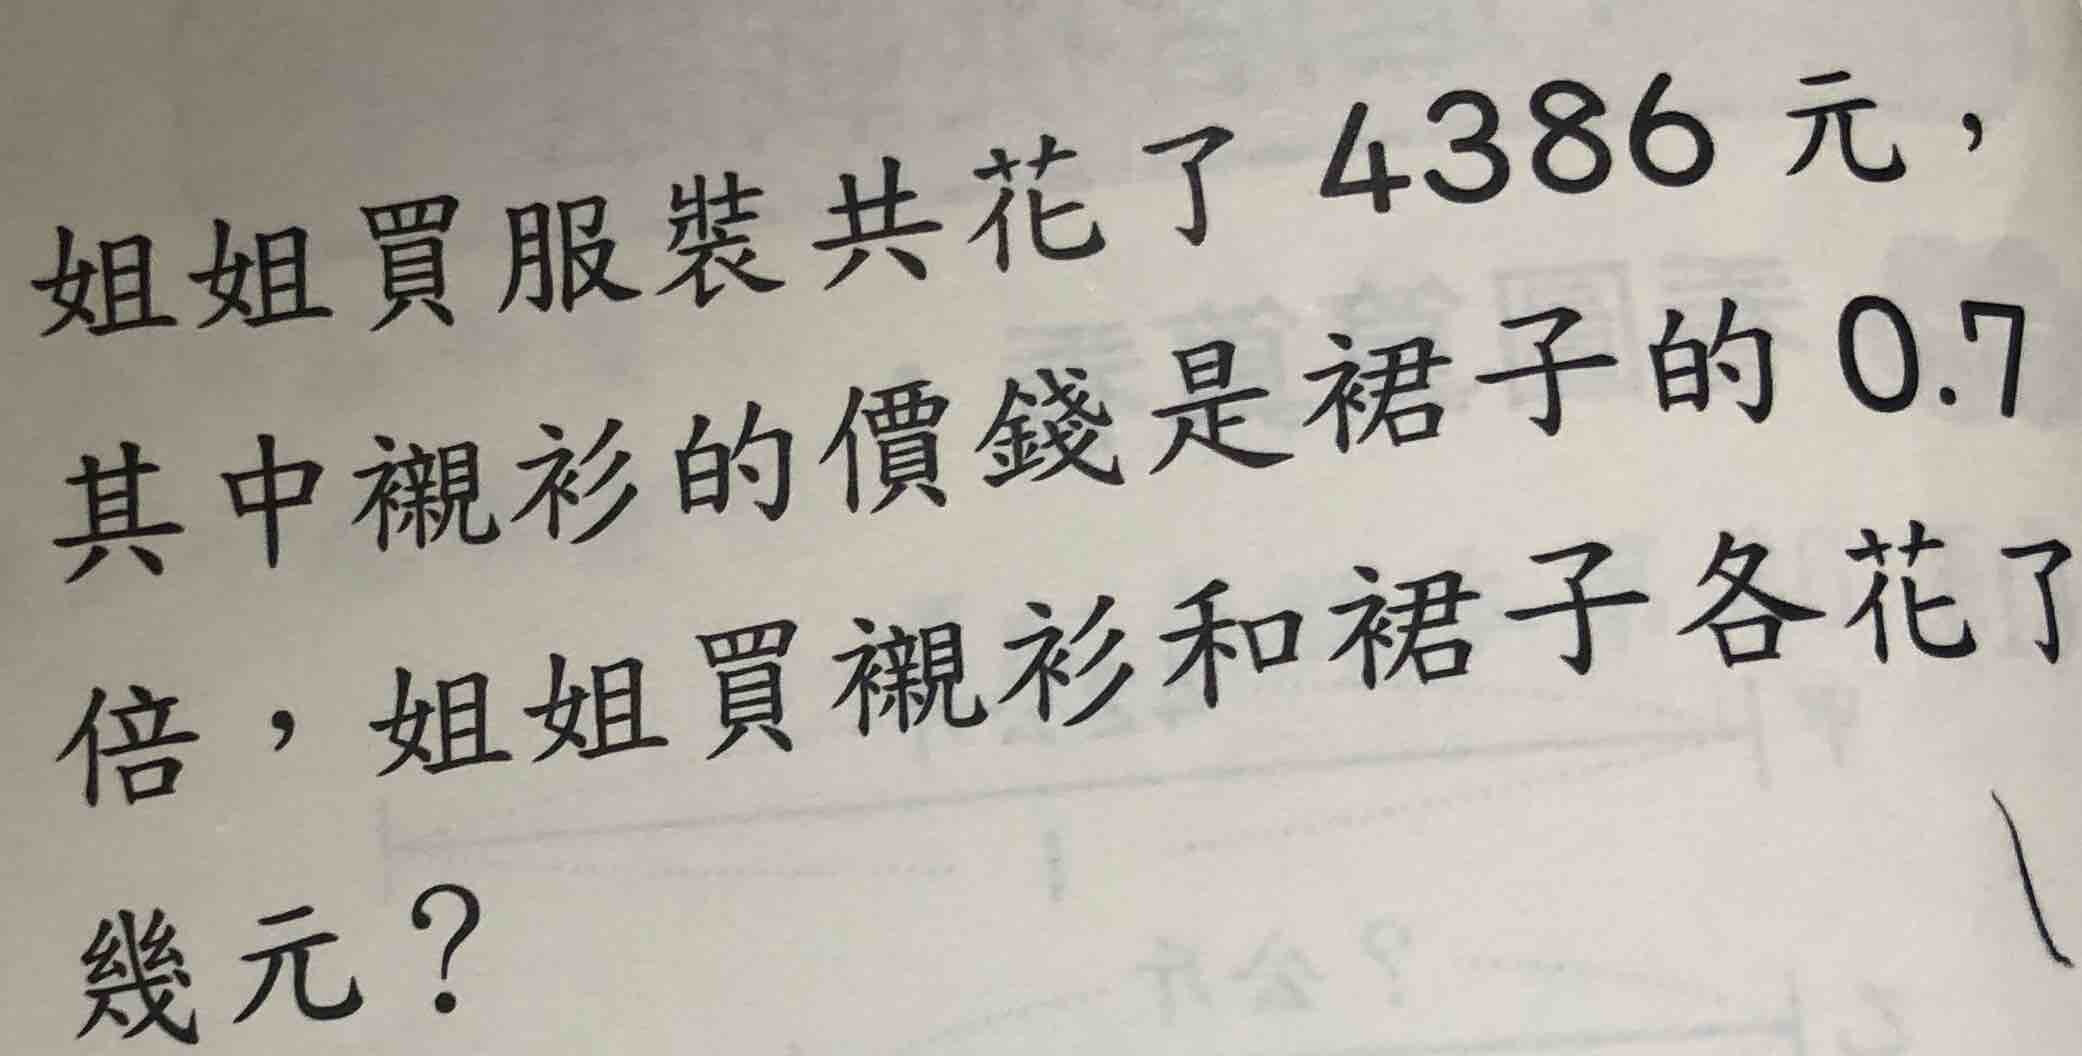 姐姐買服裝共花了 4386 元，
其中襯衫的價錢是裙子的 0.7
倍，姐姐買襯衫和裙子各花了
幾元？